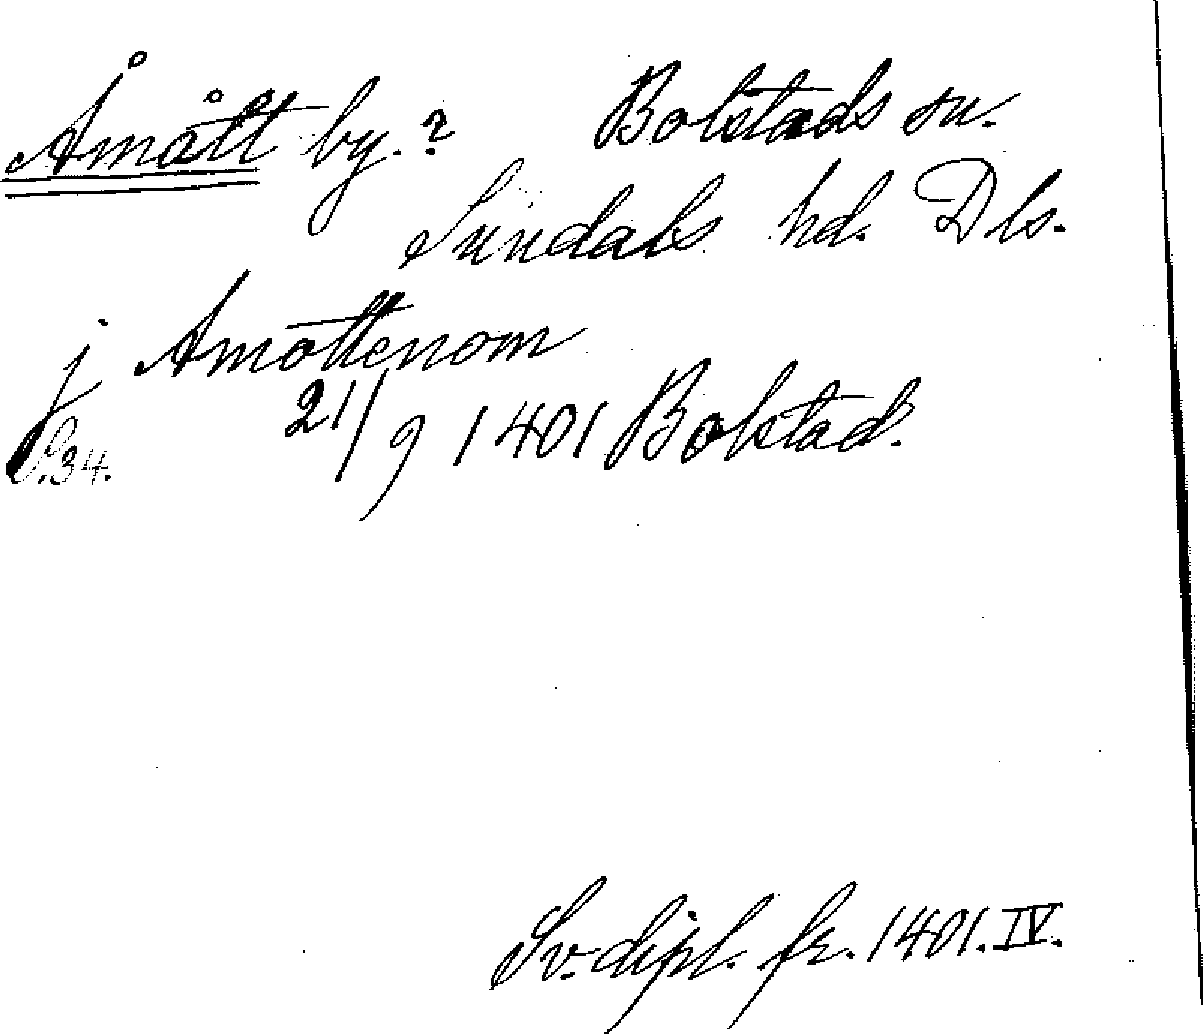 Åmått by.? Bolstads sn.
Sundals hd. Dls.
j Amottenom
S.34. 21/9 1401 Bolstad.
Sv. dipl. fr. 1401. IV.